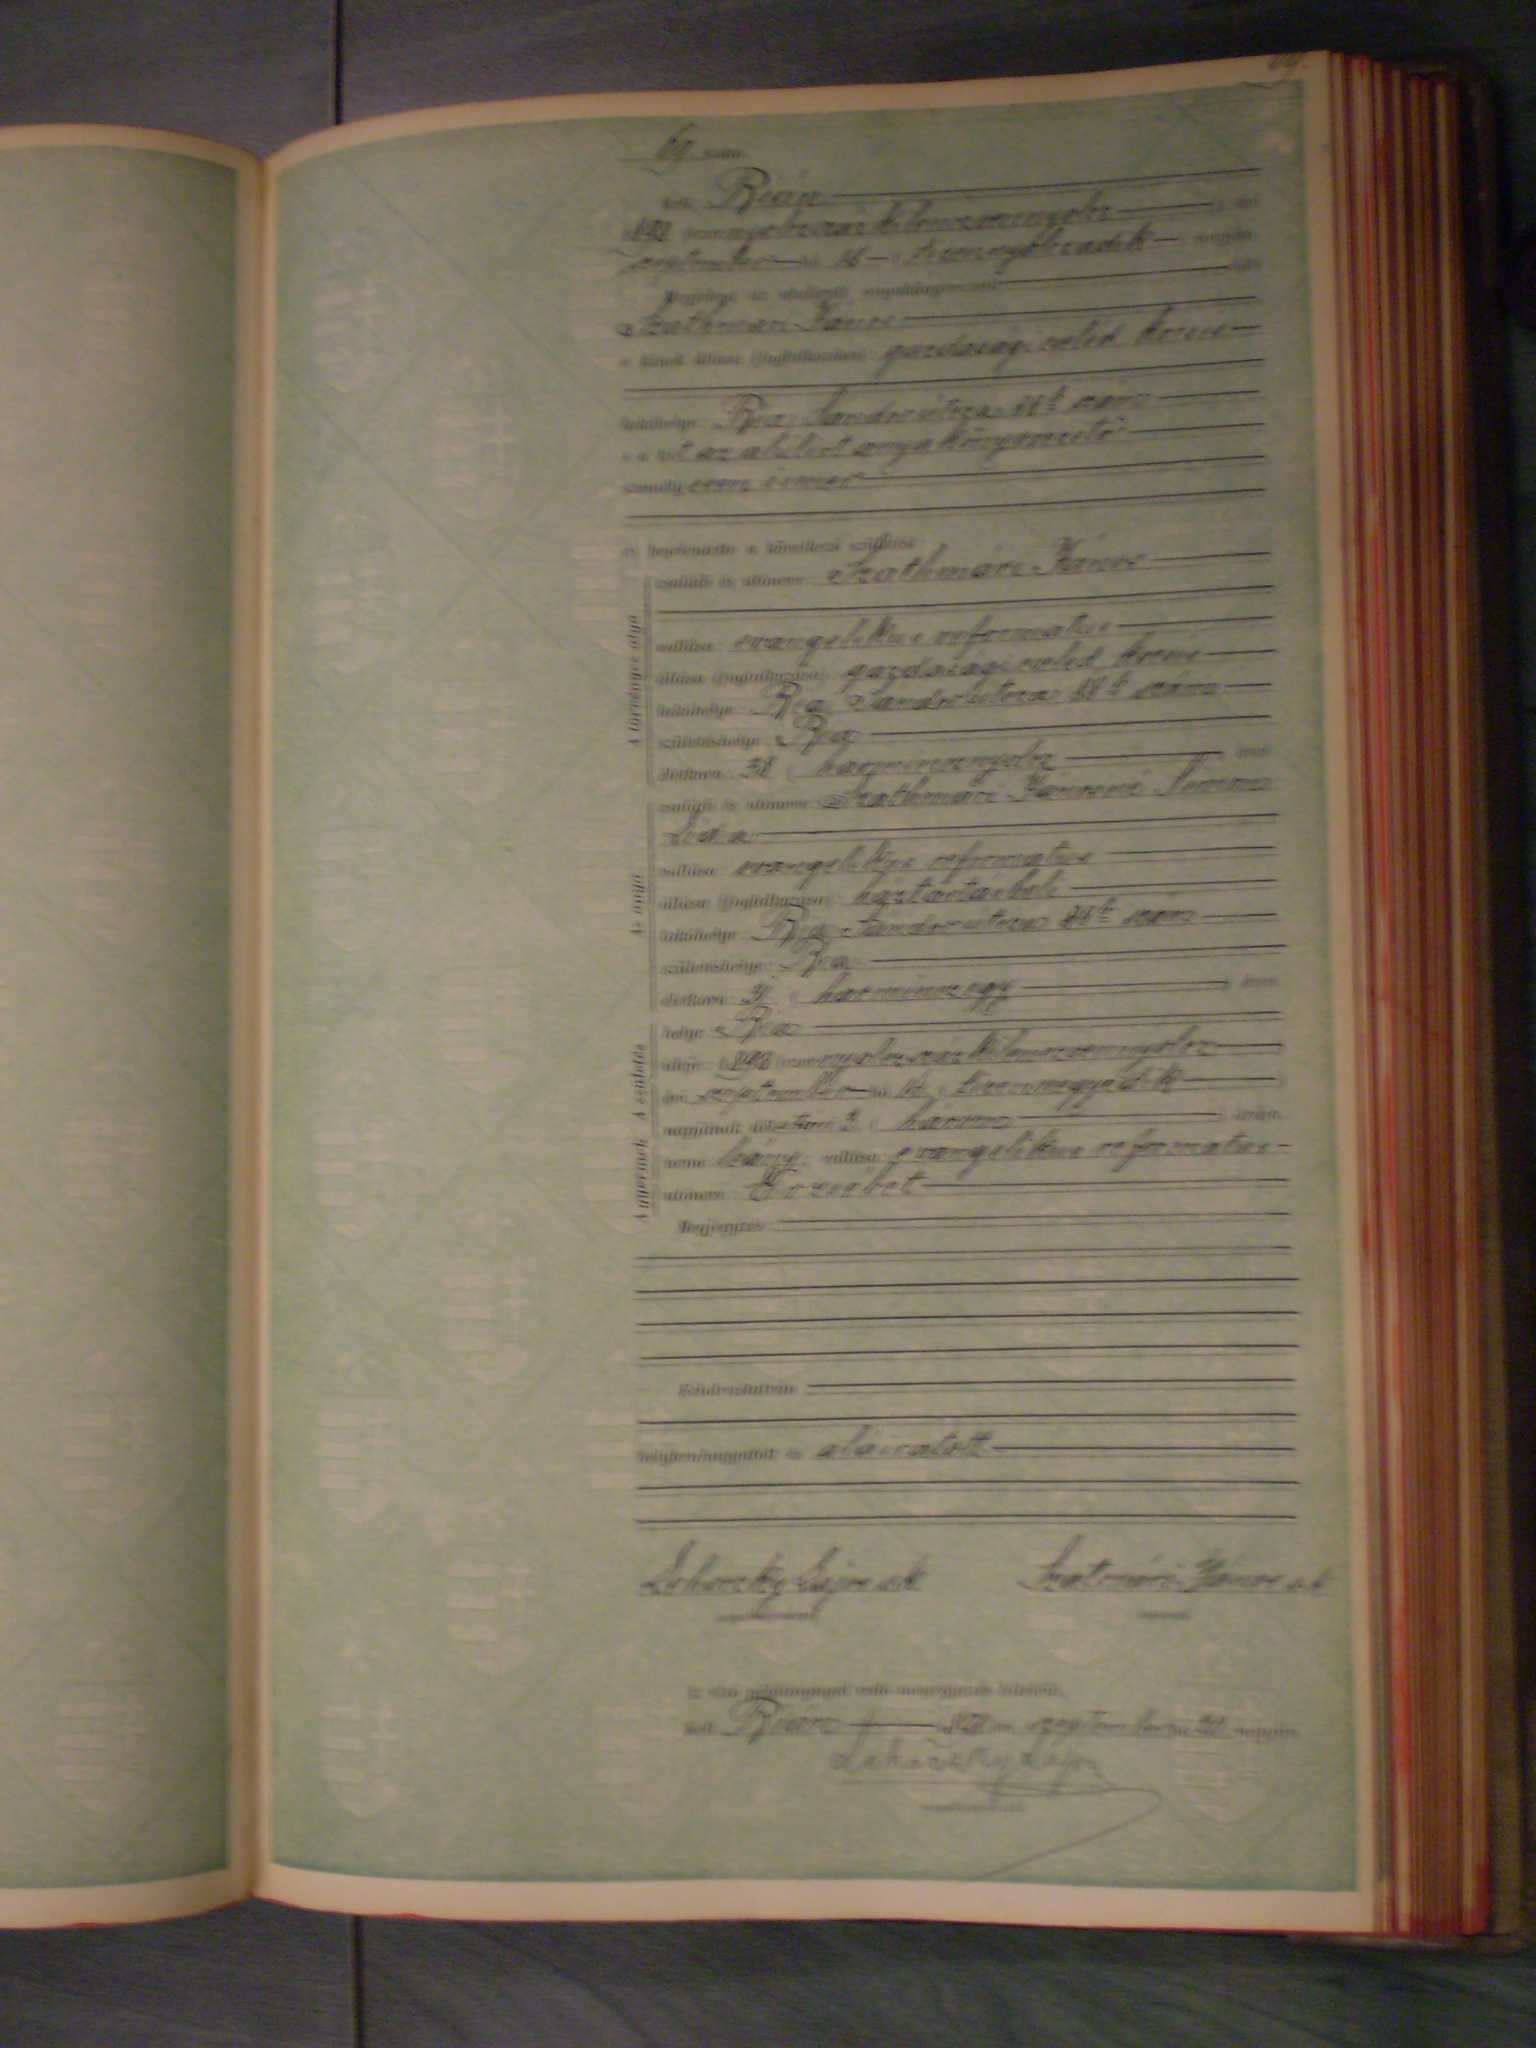 69. szám.
Kelt Reán
1898 (ezernyolczszázkilenczvennyolcz) évi
szeptember hó 16 (tizennyolczadik) napján.
Megjelent az alulírott anyakönyvvezető előtt
Szathmári János
a kinek állása (foglalkozása): gazdasági cseléd kocsis
lakóhelye: Rea, Sándor utcza szám
s a kit az alulírt anyakönyvvezető
személyesen ismer
és bejelentette a következő születést:
A törvényes atya
családi és utóneve: Szathmári János
vallása: evangelikus reformatus
állása (foglalkozása): gazdasági cseléd kocsis
lakóhelye: Rea, Sándor utcza szám
születéshelye: Rea
életkora: 38 (harmincznyolcz) éves
Az anya
családi és utóneve: Szathmári Jánosné Simon
vallása: evangelikus reformatus
állása (foglalkozása): háztartásbeli
lakóhelye: Rea, Sándor utcza szám
születéshelye: Rea
életkora: 31 (harminczegy) éves
A születés
helye: Rea
ideje: 1898 (ezernyolczszázkilenczvennyolcz)
évi szeptember hó 14 (tizennegyedik)
napjának délutáni 3 (három) órája.
A gyermek
neme: leány; vallása: evangelikus reformatus
utóneve: Erzsébet
Megjegyzés:
Felolvastatván,
helybenhagyatott és aláiratott.
Lehoczky Lajos sk
Szatmári János sk
Az első példánynyal való megegyezés hiteléül.
Kelt Reán 1898 évi szeptember hó napján.
Lehoczky Lajos